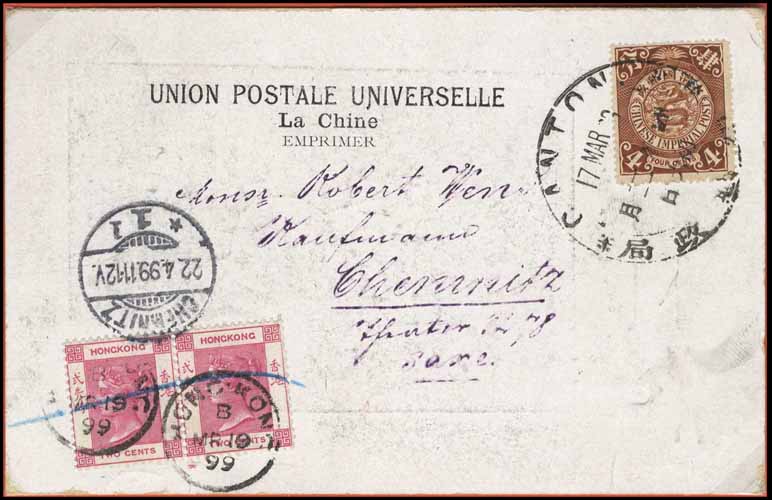 UNION POSTALE UNIVERSELLE
La Chine
EMPRIMER
CANTON
17 MAR
局
CHINESE IMPERIAL POST
4 FOUR 4
Monsr. Robert
Kaufmann
Chemnitz
Theater 78
Saxe.
1
22.4.99.11-12V.
CHEMNITZ
HONGKONG
TWO CENTS
MR 19
99
HONGKONG
香港
TWO CENTS
HONG KONG
B
MR 19
99